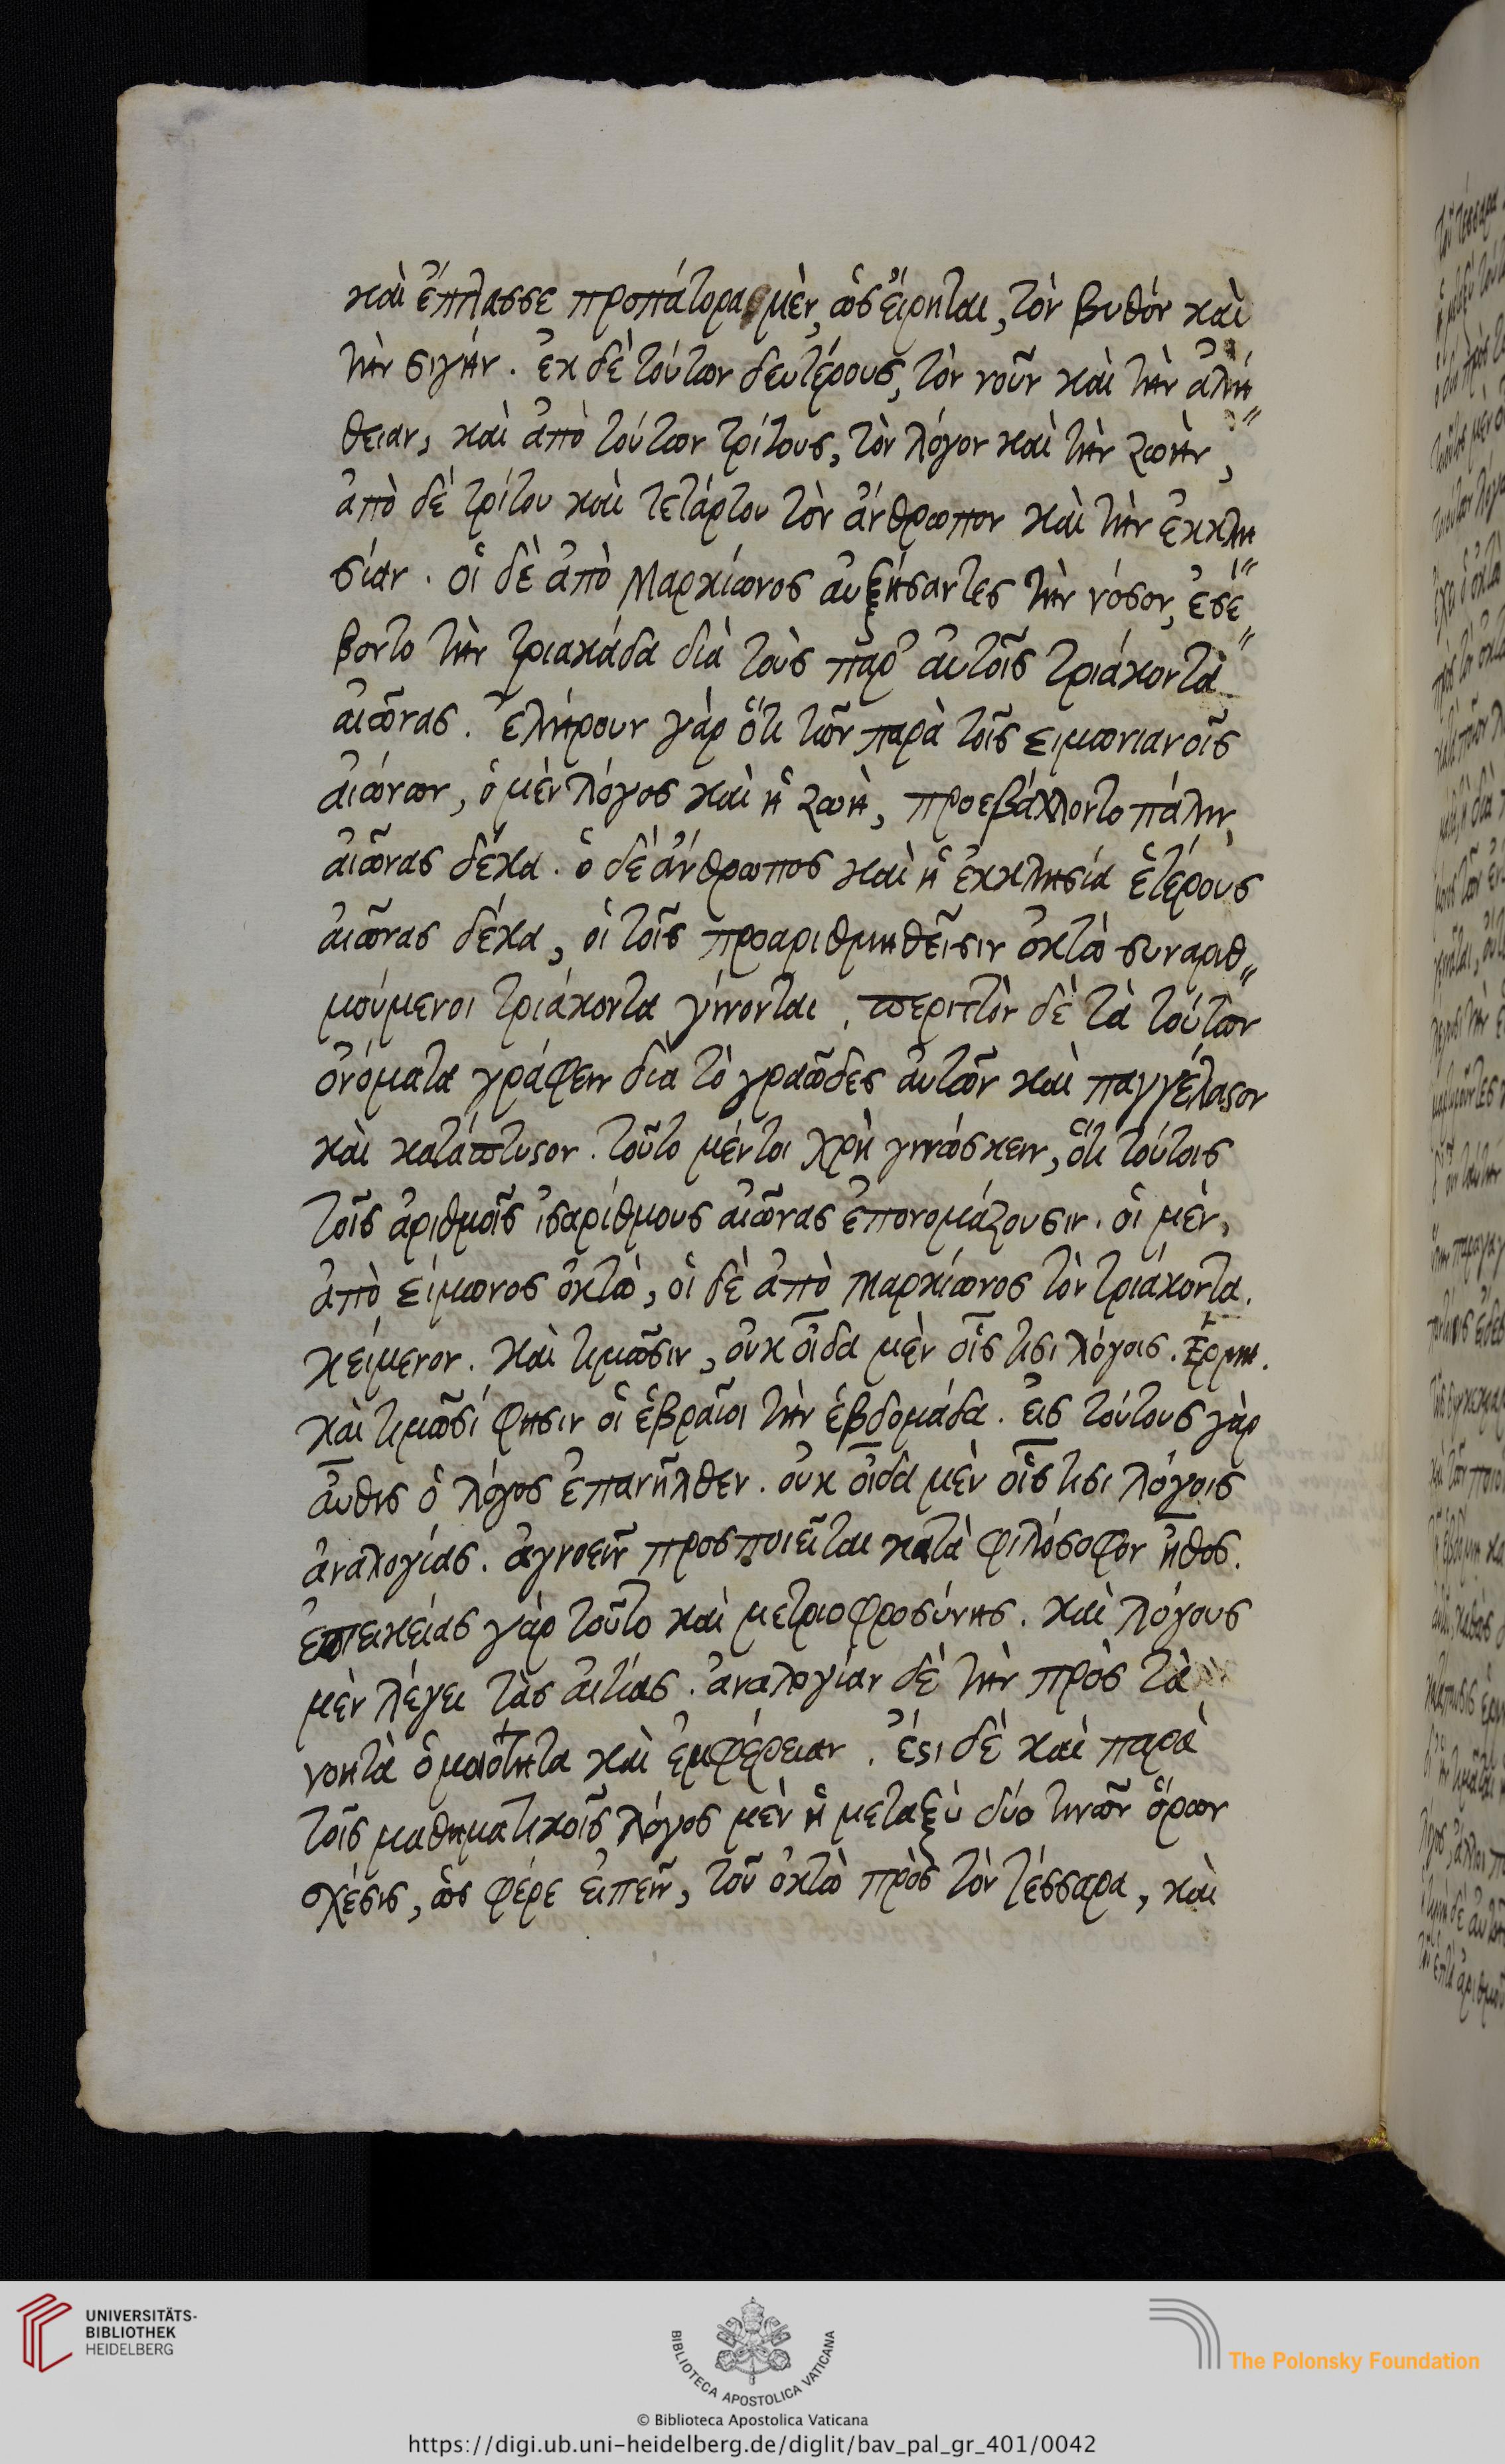 καὶ ἔπλασσε προπάτορας μὲν, ὡς εἴρηται, τὸν βυθὸν καὶ
τὴν σιγήν. ἐκ δὲ τούτων δευτέρους, τὸν νοῦν καὶ τὴν ἀλή
θειαν, καὶ ἀπὸ τούτων τρίτους, τὸν λόγον καὶ τὴν ζωὴν,
ἀπὸ δὲ τρίτου καὶ τετάρτου τὸν ἄνθρωπον καὶ τὴν ἐκκλη
σίαν. οἱ δὲ ἀπὸ Μαρκίωνος αὐξήσαντες τὴν νόσον, ἐσέ
βοντο τὴν τριακάδα διὰ τοὺς παρ' αὐτοῖς τριάκοντα
αἰῶνας. ἐλήρουν γὰρ ὅτι τῶν παρὰ τοῖς Σιμωνιανοῖς
αἰώνων, ὁ μὲν λόγος καὶ ἡ ζωὴ, προεβάλλοντο πάλιν,
αἰῶνας δέκα. ὁ δὲ ἄνθρωπος καὶ ἡ ἐκκλησία ἑτέρους
αἰῶνας δέκα, οἱ τοῖς προαριθμηθεῖσιν ὀκτὼ συναριθ
μούμενοι τριάκοντα γίνονται. περιττὸν δὲ τὰ τούτων
ὀνόματα γράφειν διὰ τὸ γραῶδες αὐτῶν καὶ παγγέλαστον
καὶ κατάπτυστον. τοῦτο μέντοι χρὴ γινώσκειν, ὅτι τούτοις
τοῖς ἀριθμοῖς ἰσαρίθμους αἰῶνας ἐπονομάζουσιν. οἱ μὲν,
ἀπὸ Σίμωνος ὀκτὼ, οἱ δὲ ἀπὸ Μαρκίωνος τὸν τριάκοντα.
κείμενον. καὶ τιμῶσιν, οὐκ οἶδα μὲν οἷς τισι λόγοις. Ἑρμη.
καὶ τιμῶσί φησιν οἱ ἑβραῖοι τὴν ἑβδομάδα. εἰς τούτους γὰρ
αὖθις ὁ λόγος ἐπανῆλθεν. οὐκ οἶδα μὲν οἷς τισι λόγοις
ἀναλογίας. ἀγνοεῖν προσποιεῖται κατὰ φιλόσοφον ἦθος.
ἐπιεικείας γὰρ τοῦτο καὶ μετριοφροσύνης. καὶ λόγους
μὲν λέγει τὰς αἰτίας. ἀναλογίαν δὲ τὴν πρὸς τὰ
νοητὰ ὁμοιότητα καὶ ἐμφέρειαν. ἔστι δὲ καὶ παρὰ
τοῖς μαθηματικοῖς λόγος μὲν ἡ μεταξὺ δύο τινῶν ὅρων
σχέσις, ὡς φέρε εἰπεῖν, τοῦ ὀκτὼ πρὸς τὸν τέσσαρα, καὶ
UNIVERSITÄTS-
BIBLIOTHEK
HEIDELBERG
BIBLIOTECA APOSTOLICA VATICANA
The Polonsky Foundation
© Biblioteca Apostolica Vaticana
https://digi.ub.uni-heidelberg.de/diglit/bav_pal_gr_401/0042